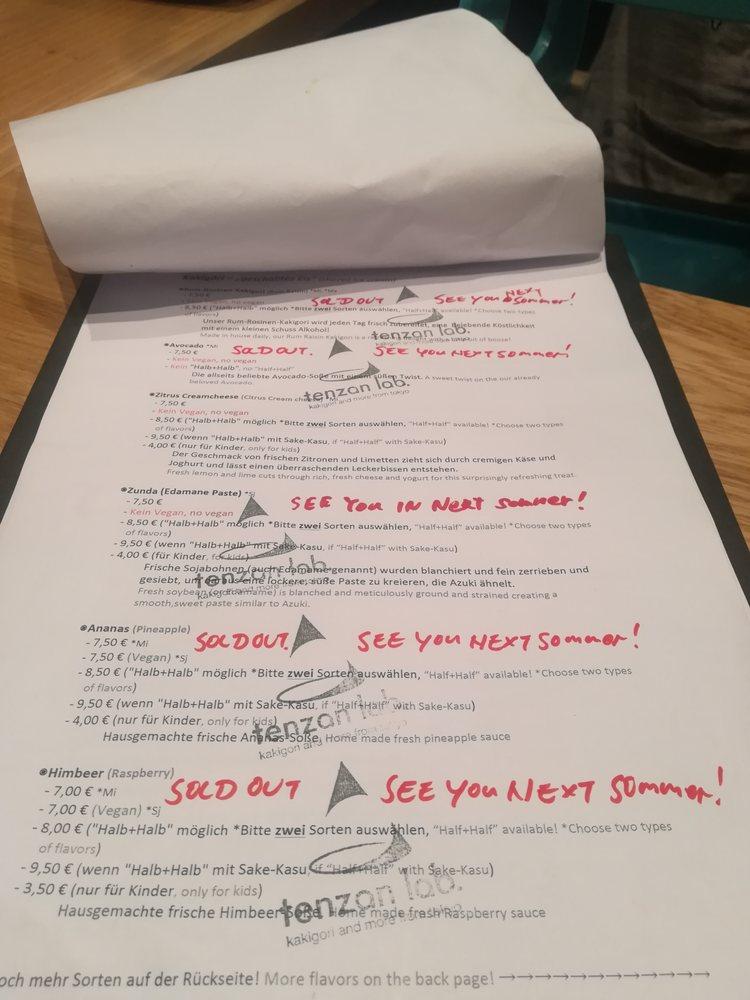 Kakigori
SOLD OUT SEE YOU NEXT sommer!
- 7,50 €
no vegan
- 8,50 € ("Halb+Halb" möglich *Bitte zwei Sorten auswählen, "Half+Half" available! *Choose two types
of flavors)
Unser Rum-Rosinen-Kakigori wird jeden Tag frisch zubereitet, eine Köstlichkeit
mit einem kleinen Schuss Alkohol!
Made in house daily, our Rum Raisin Kakigori is a of booze!
tenzan lab.
●Avocado *Mi SOLD OUT. SEE YOU NEXT sommer!
- 7,50 €
- Kein Vegan, no vegan
- Kein "Halb+Halb", no "Half+Half"
Die allseits beliebte Avocado-Soße mit einem süßen Twist. A sweet twist on the our already
beloved Avocado.
tenzan lab.
kakigori and more from tokyo
●Zitrus Creamcheese (Citrus Cream cheese) *Mi
- 7,50 €
- Kein Vegan, no vegan
- 8,50 € ("Halb+Halb" möglich *Bitte zwei Sorten auswählen, "Half+Half" available! *Choose two types
of flavors)
- 9,50 € (wenn "Halb+Halb" mit Sake-Kasu, if "Half+Half" with Sake-Kasu)
- 4,00 € (nur für Kinder, only for kids)
Der Geschmack von frischen Zitronen und Limetten zieht sich durch cremigen Käse und
Joghurt und lässt einen überraschenden Leckerbissen entstehen.
Fresh lemon and lime cuts through rich, fresh cheese and yogurt for this surprisingly refreshing treat.
●Zunda (Edamane Paste) *Sj
SEE YOU IN NEXT sommer!
- 7,50 €
- Kein Vegan, no vegan
- 8,50 € ("Halb+Halb" möglich *Bitte zwei Sorten auswählen, "Half+Half" available! *Choose two types
of flavors)
- 9,50 € (wenn "Halb+Halb" mit Sake-Kasu, if "Half+Half" with Sake-Kasu)
- 4,00 € (für Kinder, for kids)
Frische Sojabohnen (auch Edamame genannt) wurden blanchiert und fein zerrieben und
gesiebt, um daraus eine lockere, süße Paste zu kreieren, die Azuki ähnelt.
Fresh soybean (or Edamame) is blanched and meticulously ground and strained creating a
smooth,sweet paste similar to Azuki.
tenzan lab.
●Ananas (Pineapple)
SOLD OUT. SEE YOU NEXT sommer!
- 7,50 € *Mi
- 7,50 € (Vegan) *Sj
- 8,50 € ("Halb+Halb" möglich *Bitte zwei Sorten auswählen, "Half+Half" available! *Choose two types
of flavors)
- 9,50 € (wenn "Halb+Halb" mit Sake-Kasu, if "Half+Half" with Sake-Kasu)
- 4,00 € (nur für Kinder, only for kids)
Hausgemachte frische Ananas-Soße, Home made fresh pineapple sauce
tenzan lab.
kakigori and more from tokyo
●Himbeer (Raspberry)
SOLD OUT SEE YOU NEXT sommer!
- 7,00 € *Mi
- 7,00 € (Vegan) *Sj
- 8,00 € ("Halb+Halb" möglich *Bitte zwei Sorten auswählen, "Half+Half" available! *Choose two types
of flavors)
- 9,50 € (wenn "Halb+Halb" mit Sake-Kasu, if "Half+Half" with Sake-Kasu)
- 3,50 € (nur für Kinder, only for kids)
Hausgemachte frische Himbeer-Soße, Home made fresh Raspberry sauce
tenzan lab.
kakigori and more from tokyo
och mehr Sorten auf der Rückseite! More flavors on the back page!